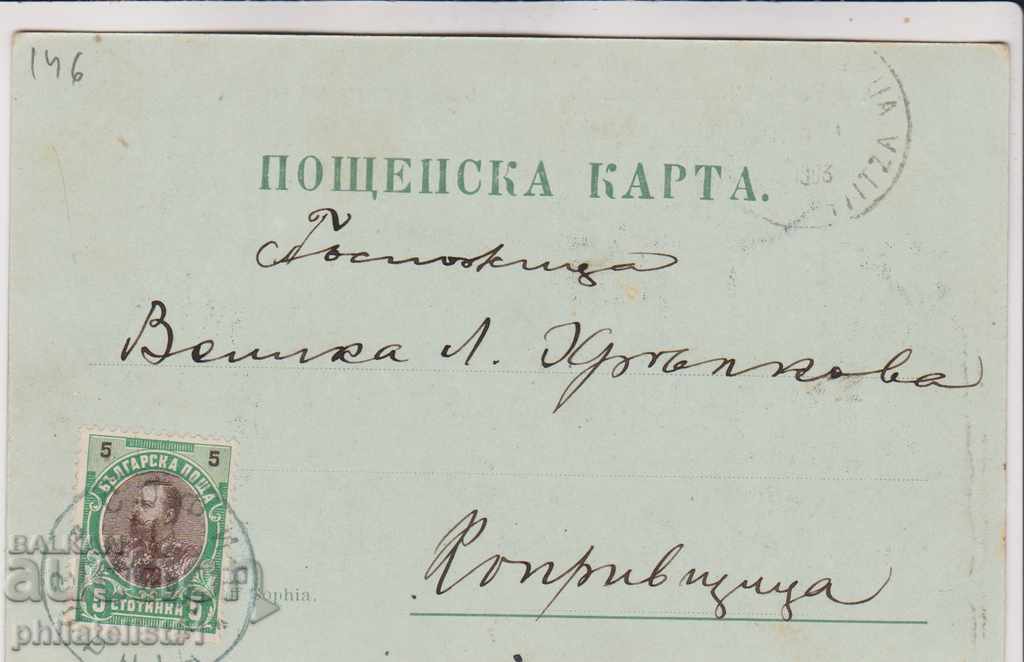 146
ПОЩЕНСКА КАРТА.
1903
ITZA
Госпожица
Велика Л. Хръпкова
5 5
БЪЛГАРСКА ПОЩА
5 СТОТИНКИ 5
Копривщица
Sophia.
BALKAN
philatelist#1